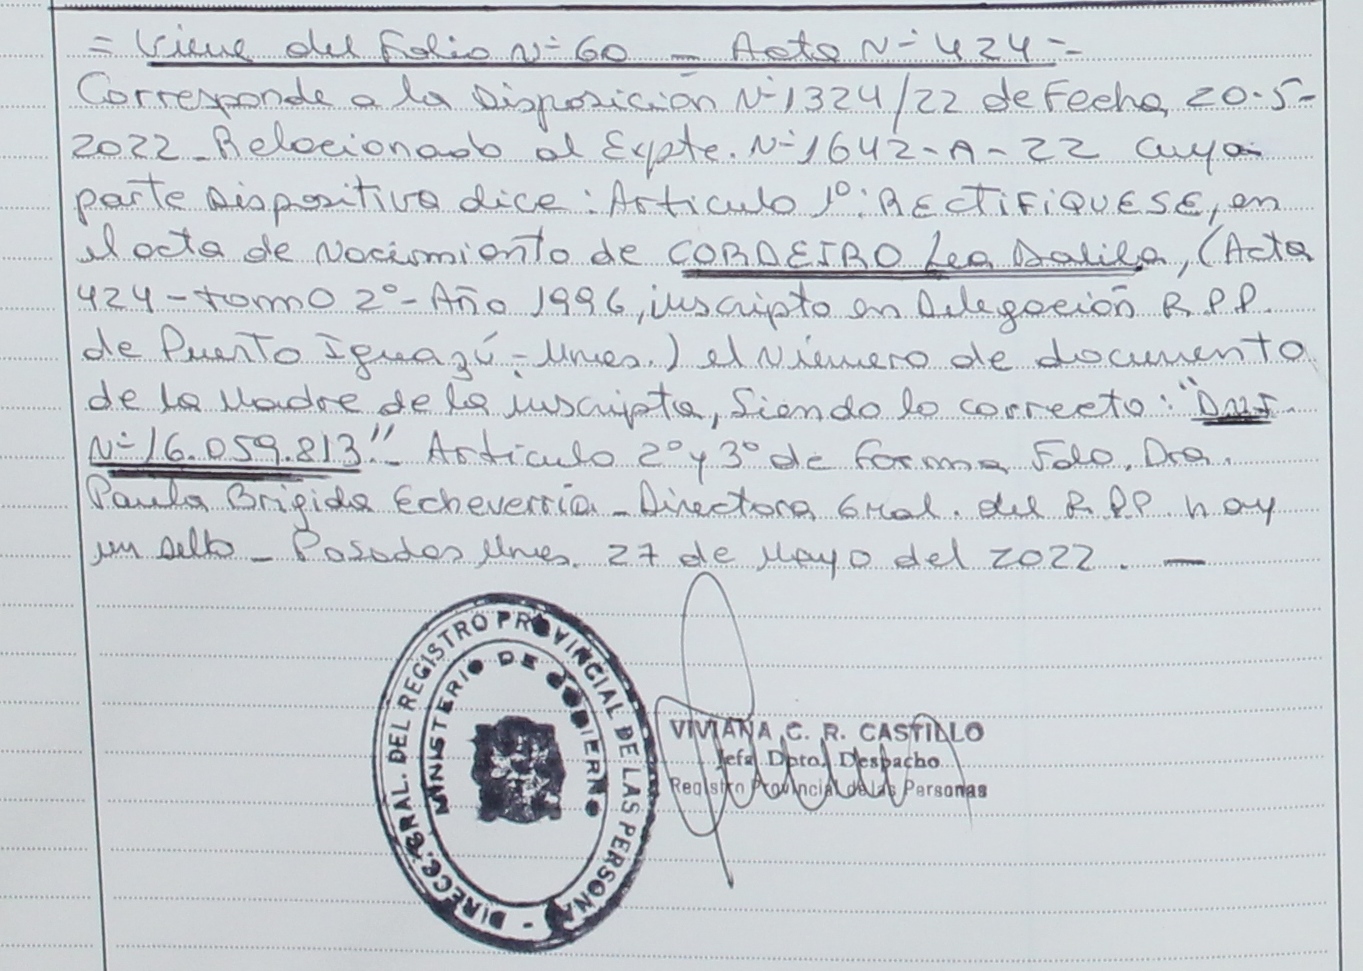 = Viene del Folio N° 60 - Acta N° 424 =-
Corresponde a la Disposición N° 1324/22 de Fecha 20-5-
2022 - Relacionado al Expte. N° 1642-A-22 cuya
parte Dispositiva dice: Articulo 1°: RECTIFIQUESE, en
el acta de Nacimiento de CORDEIRO Lea Dalila, (Acta
424 - tomo 2° - Año 1996, inscripto en Delegación R.P.P.
de Puerto Iguazú - Mnes.) el Número de documento
de la Madre de la inscripta, Siendo lo correcto: "DNI
N° 16.059.813" Articulo 2° y 3° de forma Fdo. Dra.
Paula Brigida Echeverría - Directora Gral. del R.P.P. hay
un sello - Posadas Mnes. 27 de Mayo del 2022. —
DIRECC. GRAL. DEL REGISTRO PROVINCIAL DE LAS PERSONAS -
MINISTERIO DE GOBIERNO
VIVIANA C. R. CASTILLO
Jefa Dpto. Despacho
Registro Provincial de las Personas